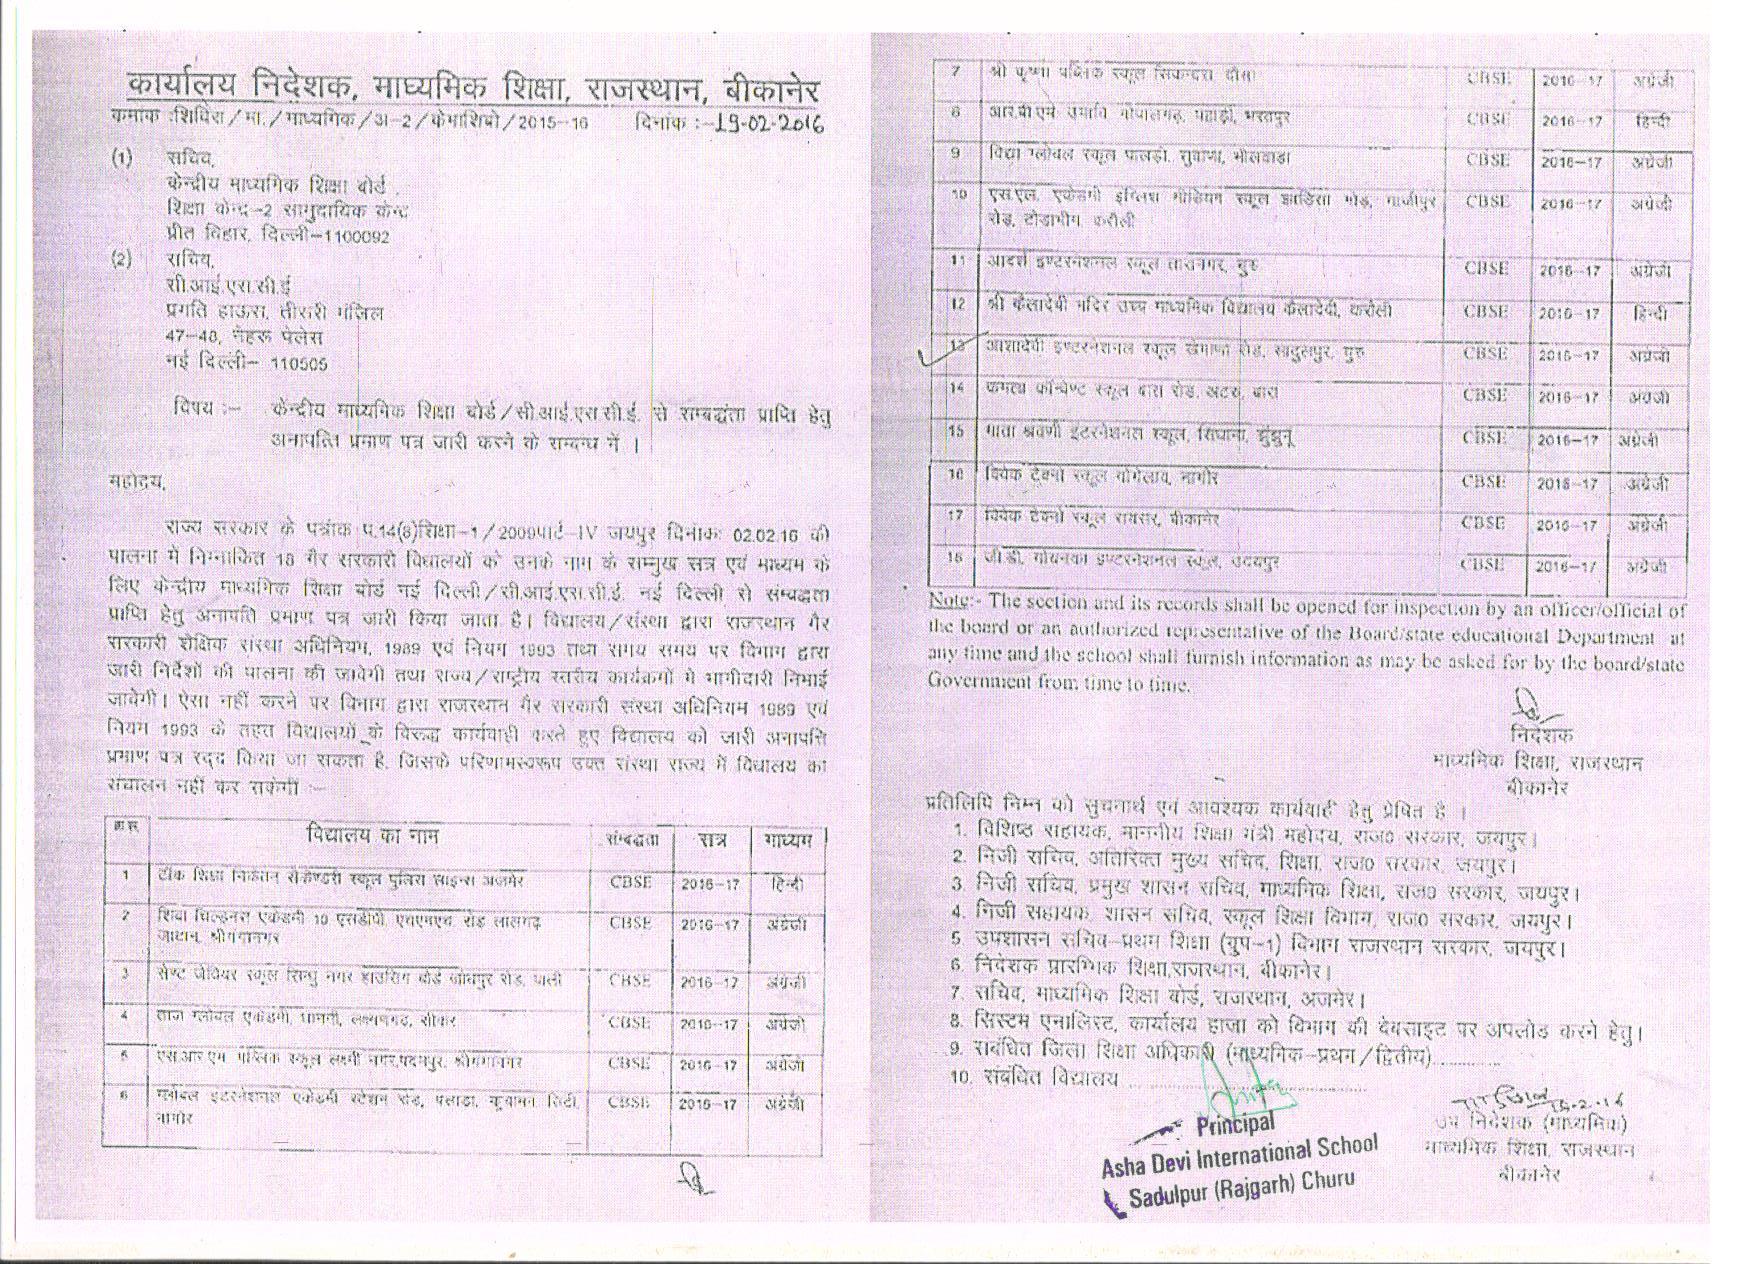 कार्यालय निदेशक, माध्यमिक शिक्षा, राजस्थान, बीकानेर
कमांक :शिविरा/मा./माध्यमिक/अ-2/केमाशिबो/2015-16 दिनांक :-19-02-2016
(1) सचिव,
केन्द्रीय माध्यमिक शिक्षा बोर्ड,
शिक्षा केन्द्र-2 सामुदायिक केन्द्र
प्रीत विहार, दिल्ली-1100092
(2) सचिव,
सी.आई.एस.सी.ई
प्रगति हाऊस, तीसरी मंजिल
47-48, नेहरू पेलेस
नई दिल्ली- 110505
विषय :- केन्द्रीय माध्यमिक शिक्षा बोर्ड/सी.आई.एस.सी.ई. से सम्बद्धता प्राप्ति हेतु
अनापत्ति प्रमाण पत्र जारी करने के सम्बन्ध में ।
महोदय,
राज्य सरकार के पत्रांक प.14(8)शिक्षा-1/2009पार्ट-IV जयपुर दिनांक: 02.02.16 की
पालना में निम्नांकित 18 गैर सरकारी विद्यालयों को उनके नाम के सम्मुख सत्र एवं माध्यम के
लिए केन्द्रीय माध्यमिक शिक्षा बोर्ड नई दिल्ली/सी.आई.एस.सी.ई. नई दिल्ली से संम्बद्धता
प्राप्ति हेतु अनापति प्रमाण पत्र जारी किया जाता है। विद्यालय/संस्था द्वारा राजस्थान गैर
सरकारी शैक्षिक संस्था अधिनियम, 1989 एवं नियम 1993 तथा समय समय पर विभाग द्वारा
जारी निर्देशों की पालना की जावेगी तथा राज्य/राष्ट्रीय स्तरीय कार्यक्रमों मे भागीदारी निभाई
जावेगी। ऐसा नहीं करने पर विभाग द्वारा राजस्थान गैर सरकारी संस्था अधिनियम 1989 एवं
नियम 1993 के तहत विद्यालयों के विरूद्ध कार्यवाही करते हुए विद्यालय को जारी अनापत्ति
प्रमाण पत्र रद्द किया जा सकता है, जिसके परिणामस्वरूप उक्त संस्था राज्य में विद्यालय का
संचालन नहीं कर सकेगी :-
विद्यालय का नाम संम्बद्धता सत्र माध्यम
1 टोंक शिक्षा निकेतन सेकेण्डरी स्कूल पुलिस लाइन्स अजमेर CBSE 2016-17 हिन्दी
2 शिवा चिल्ड्रनस एकेडमी 10 एसडीपी, एचएमएच रोड लालगढ़ CBSE 2016-17 अंग्रेजी
जाटान, श्रीगंगानगर
3 सेण्ट जेवियर स्कूल सिन्धु नगर हाउसिंग बोर्ड जोधपुर रोड, पाली CBSE 2016-17 अंग्रेजी
4 ताज ग्लोबल एकेडमी, लक्ष्मणगढ़, सीकर CBSE 2016-17 अंग्रेजी
5 एस.आर.एम. पब्लिक स्कूल लक्ष्मी नगर,पदमपुर, श्रीगंगानगर CBSE 2016-17 अंग्रेजी
6 ग्लोबल इंटरनेशनल एकेडमी स्टेशन रोड, पलाडा, कुचामन सिटी, CBSE 2016-17 अंग्रेजी
नागौर
7 श्री कृष्णा पब्लिक स्कूल सिकन्दरा दौसा CBSE 2016-17 अंग्रेजी
8 आर.बी.एम. उमावि गोपालगढ़, पहाड़ी, भरतपुर CBSE 2016-17 हिन्दी
9 विद्या ग्लोबल स्कूल पालड़ी, सुवाणा, भीलवाडा CBSE 2016-17 अंग्रेजी
10 एस.एल. एकेडमी इंग्लिश मीडियम स्कूल झाडिसा मोड़, गाजीपुर CBSE 2016-17 अंग्रेजी
रोड, टोडाभीम, करौली
11 आदर्श इण्टरनेशनल स्कूल तारानगर, चुरु CBSE 2016-17 अंग्रेजी
12 श्री कैलादेवी मंदिर उच्च माध्यमिक विद्यालय कैलादेवी, करौली CBSE 2016-17 हिन्दी
13 आशादेवी इण्टरनेशनल स्कूल खेमाणा रोड, सादुलपुर, चुरु CBSE 2016-17 अंग्रेजी
14 कमला कॉन्वेण्ट स्कूल बारा रोड, अटरू, बारा CBSE 2016-17 अंग्रेजी
15 माता श्रवणी इंटरनेशनल स्कूल, सिंघाना, झुंझुनू CBSE 2016-17 अंग्रेजी
16 विवेक टेक्नो स्कूल गोगेलाव, नागौर CBSE 2016-17 अंग्रेजी
17 विवेक टेक्नो स्कूल रायसर, बीकानेर CBSE 2016-17 अंग्रेजी
18 जी.डी. गोयनका इण्टरनेशनल स्कूल, उदयपुर CBSE 2016-17 अंग्रेजी
Note:- The section and its records shall be opened for inspection by an officer/official of
the board or an authorized representative of the Board/state educational Department at
any time and the school shall furnish information as may be asked for by the board/state
Government from time to time.
निदेशक
माध्यमिक शिक्षा, राजस्थान
बीकानेर
प्रतिलिपि निम्न को सुचनार्थ एवं आवश्यक कार्यवाही हेतु प्रेषित है ।
1. विशिष्ठ सहायक, माननीय शिक्षा मंत्री महोदय, राज0 सरकार, जयपुर।
2. निजी सचिव, अतिरिक्त मुख्य सचिव, शिक्षा, राज0 सरकार, जयपुर।
3. निजी सचिव, प्रमुख शासन सचिव, माध्यमिक शिक्षा, राज0 सरकार, जयपुर।
4. निजी सहायक, शासन सचिव, स्कूल शिक्षा विभाग, राज0 सरकार, जयपुर।
5. उपशासन सचिव-प्रथम शिक्षा (ग्रुप-1) विभाग राजस्थान सरकार, जयपुर।
6. निदेशक प्रारम्भिक शिक्षा,राजस्थान, बीकानेर।
7. सचिव, माध्यमिक शिक्षा बोर्ड, राजस्थान, अजमेर।
8. सिस्टम एनालिस्ट, कार्यालय हाजा को विभाग की वेबसाइट पर अपलोड करने हेतु।
9. संबंधित जिला शिक्षा अधिकारी (माध्यमिक-प्रथम/द्वितीय)............
10. संबंधित विद्यालय
Principal
Asha Devi International School
Sadulpur (Rajgarh) Churu
उप निदेशक (माध्यमिक)
माध्यमिक शिक्षा, राजस्थान
बीकानेर